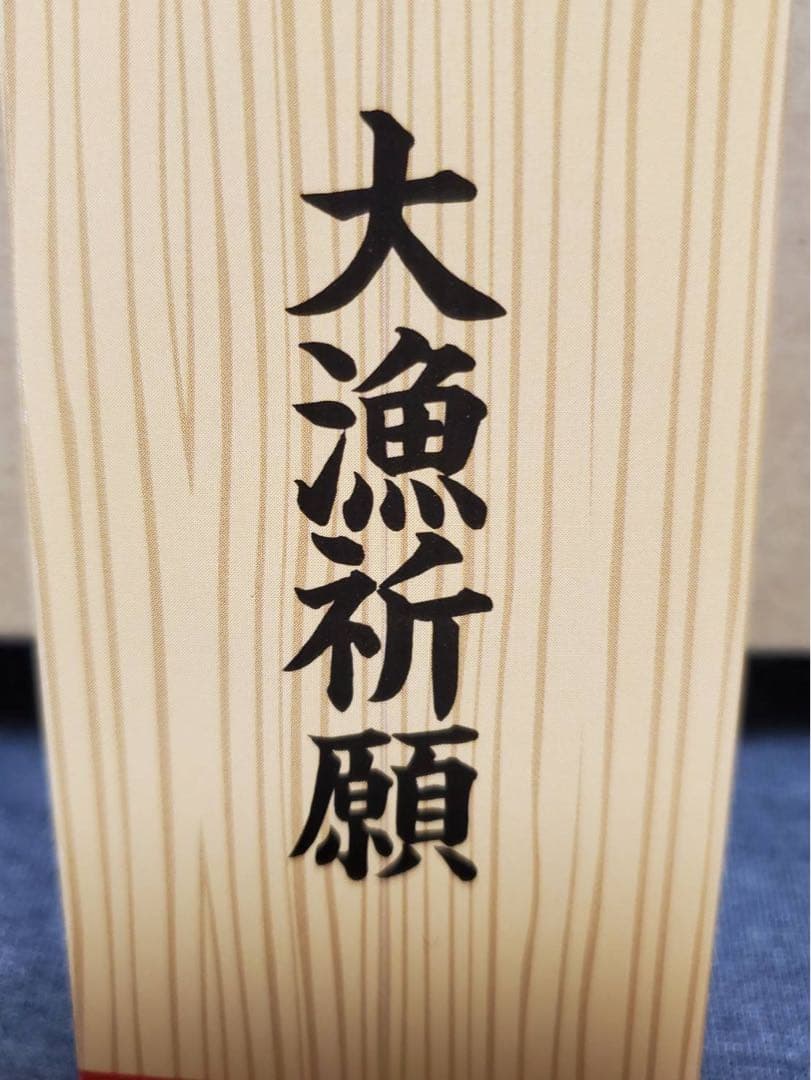 大漁祈願